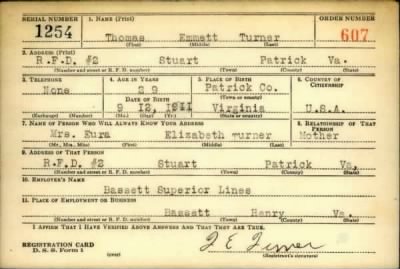 SERIAL NUMBER 1. NAME (Print) ORDER NUMBER
1254 Thomas Emmett Turner 607
(First) (Middle) (Last)
2. ADDRESS (Print)
R.F.D. #2 Stuart Patrick Va.
(Number and street or R. F. D. number) (Town) (County) (State)
3. TELEPHONE 4. AGE IN YEARS 5. PLACE OF BIRTH 6. COUNTRY OF CITIZENSHIP
None 29 Patrick Co.
DATE OF BIRTH (Town or county)
9 12, 1911 Virginia U.S.A.
(Exchange) (Number) (Mo.) (Day) (Yr.) (State or country)
7. NAME OF PERSON WHO WILL ALWAYS KNOW YOUR ADDRESS 8. RELATIONSHIP OF THAT PERSON
Mrs. Eura Elizabeth Turner Mother
(Mr., Mrs., Miss) (First) (Middle) (Last)
9. ADDRESS OF THAT PERSON
R.F.D. #2 Stuart Patrick Va,
(Number and street or R. F. D. number) (Town) (County) (State)
10. EMPLOYER'S NAME
Bassett Superior Lines
11. PLACE OF EMPLOYMENT OR BUSINESS
Bassett Henry Va.
(Number and street or R. F. D. number) (Town) (County) (State)
I AFFIRM THAT I HAVE VERIFIED ABOVE ANSWERS AND THAT THEY ARE TRUE.
REGISTRATION CARD
D. S. S. Form 1 T E Turner
(Registrant's signature)